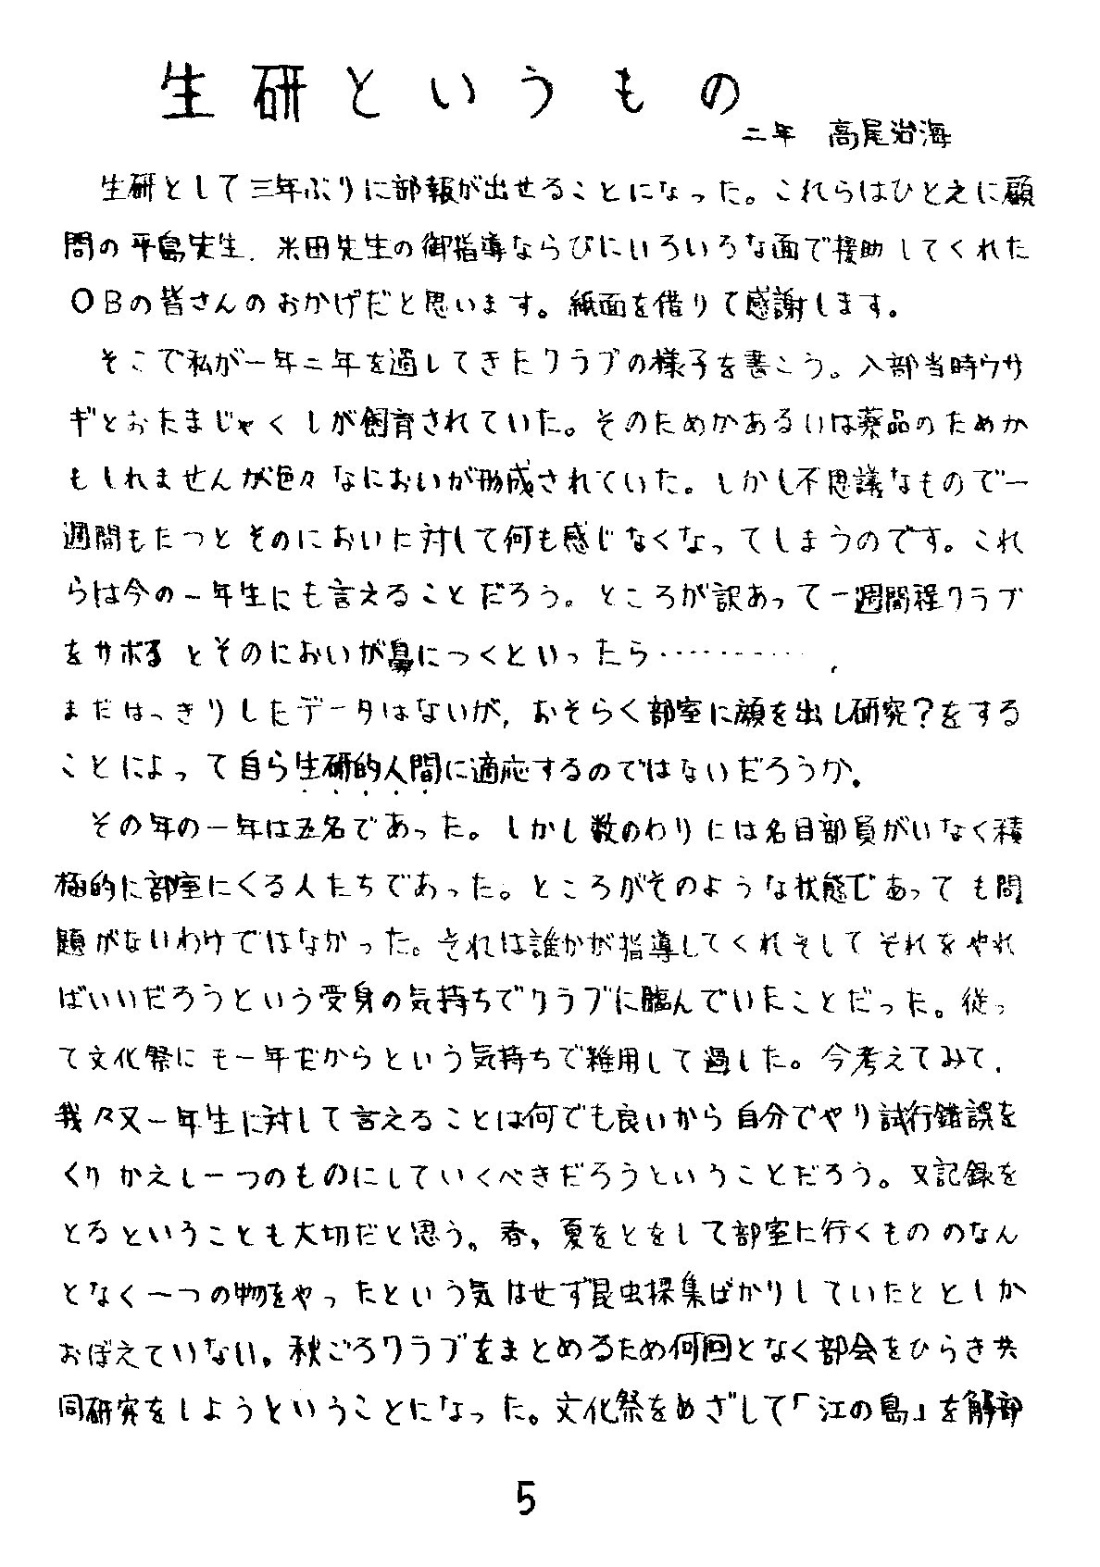 生研というもの
二年 高尾治海
生研として三年ぶりに部報が出せることになった。これらはひとえに顧
問の平島先生．米田先生の御指導ならびにいろいろな面で援助してくれた
OBの皆さんのおかげだと思います。紙面を借りて感謝します。
そこで私が一年二年を過してきたクラブの様子を書こう。入部当時ウサ
ギとおたまじゃくしが飼育されていた。そのためかあるいは薬品のためか
もしれませんが色々なにおいが形成されていた。しかし不思議なもので一
週間もたつとそのにおいに対して何も感じなくなってしまうのです。これ
らは今の一年生にも言えることだろう。ところが訳あって一週間程クラブ
をサボるとそのにおいが鼻につくといったら‥‥‥‥‥，
まだはっきりしたデータはないが，おそらく部室に顔を出し研究?をする
ことによって自ら生研的人間に適応するのではないだろうか．
その年の一年は五名であった。しかし数のわりには名目部員がいなく積
極的に部室にくる人たちであった。ところがそのような状態であっても問
題がないわけではなかった。それは誰かが指導してくれそしてそれをやれ
ばいいだろうという受身の気持ちでクラブに臨んでいたことだった。従っ
て文化祭にも一年だからという気持ちで雑用して過した。今考えてみて．
我々又一年生に対して言えることは何でも良いから自分でやり試行錯誤を
くりかえし一つのものにしていくべきだろうということだろう。又記録を
とるということも大切だと思う。春，夏をとをして部室に行くもののなん
となく一つの物をやったという気はせず昆虫採集ばかりしていたととしか
おぼえていない。秋ごろクラブをまとめるため何回となく部会をひらき共
同研究をしようということになった。文化祭をめざして「江の島」を解部
5